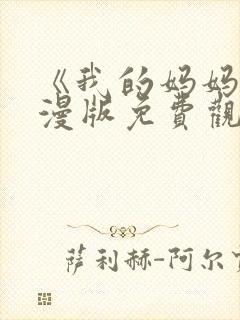 《我的妈妈
漫版免費觀
萨利赫-阿尔